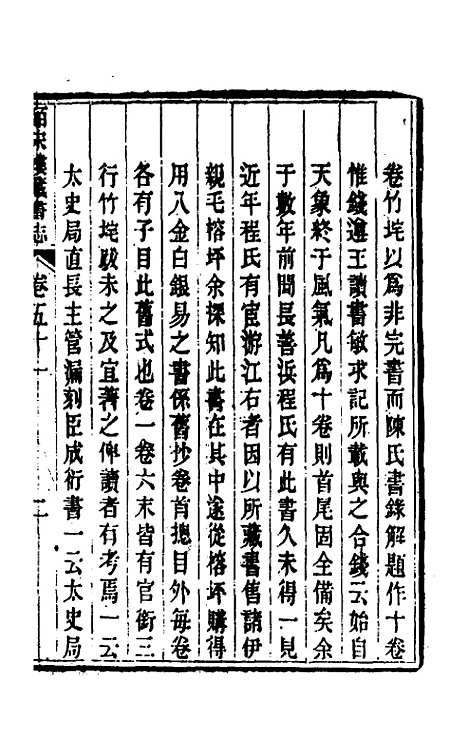 卷竹垞以爲非完書而陳氏書錄解題作十卷
惟錢遵王讀書敏求記所載與之合錢云始自
天象終于風氣凡爲十卷則首尾固全備矣余
于數年前聞長善浜程氏有此書久未得一見
近年程氏有宦游江右者因以所藏書售諸伊
親毛榕坪余探知此書在其中遂從榕坪購得
用八金白銀易之書係舊抄卷首總目外每卷
各有子目此舊式也卷一卷六末皆有官銜三
行竹垞跋未之及宜著之俾讀者有考焉一云
太史局直長主管漏刻臣成衍書一云太史局
皕宋樓藏書志 卷五十一 二